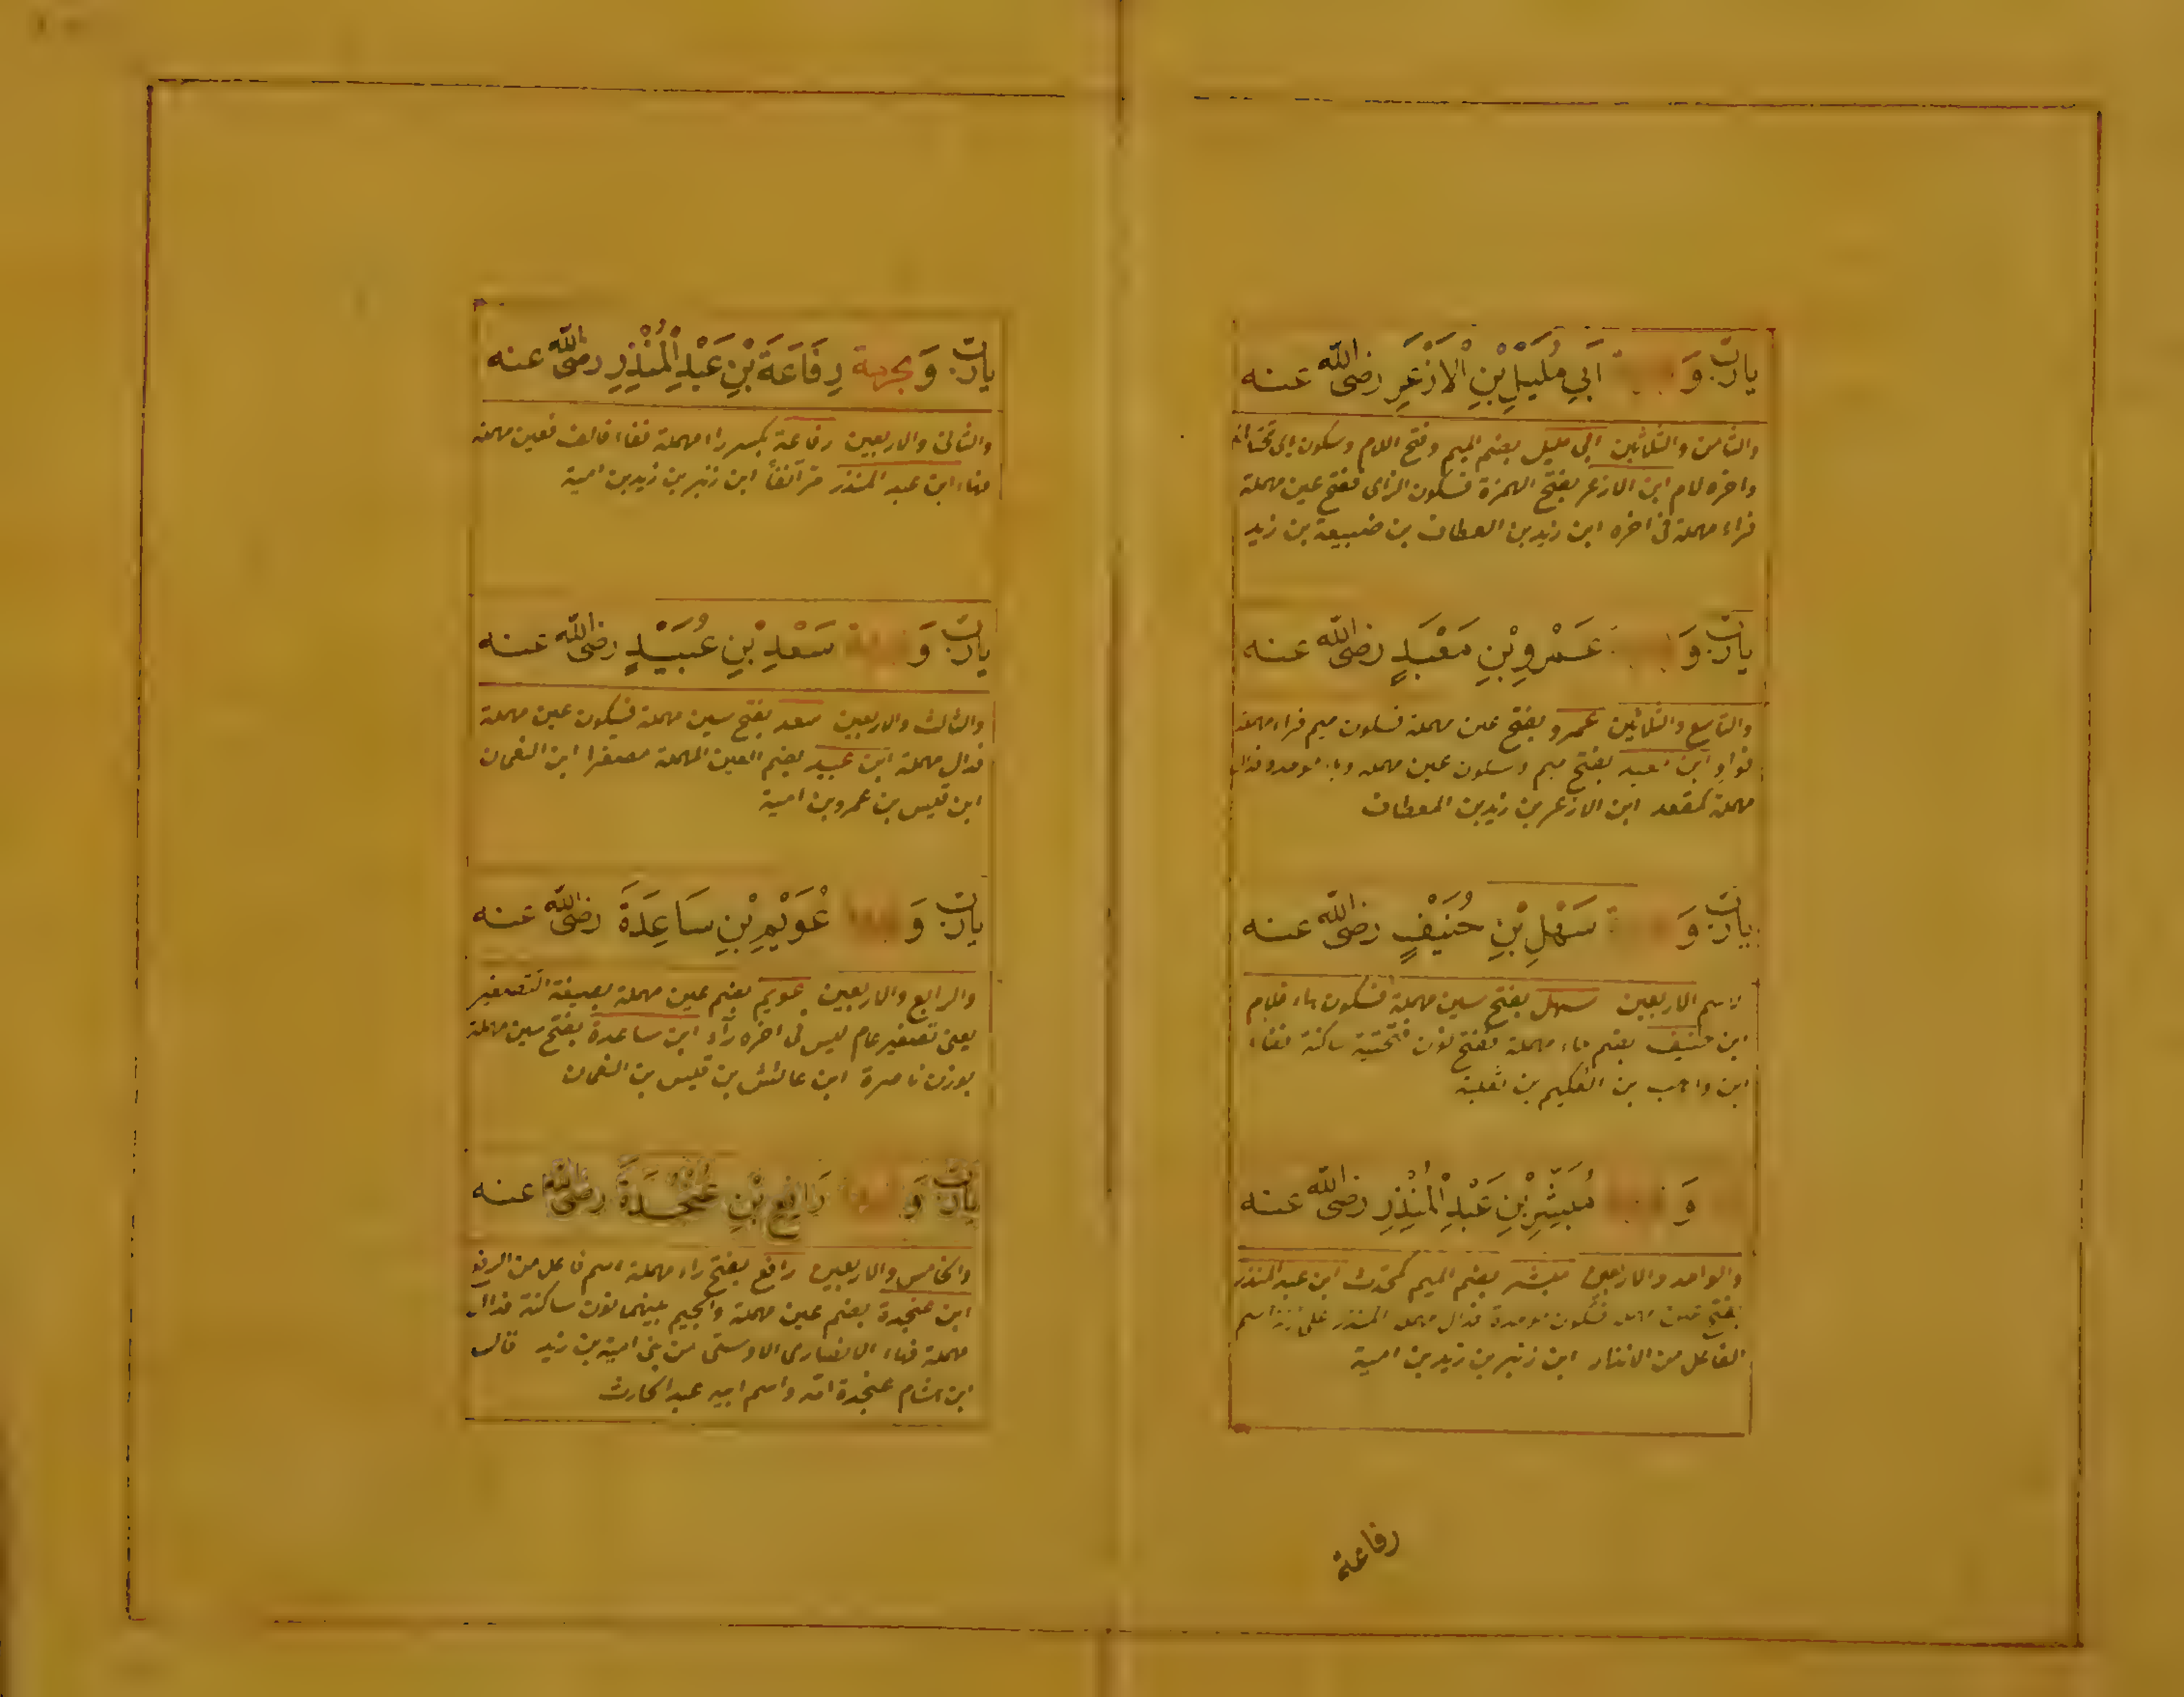 يارب وَ أَبِي مُلَيْلِ بْنِ الْأَزْعَرِ رضى الله عنه
والثامن والثلاثين ابى مليل بضم الميم وفتح اللام وسكون
واخره لام ابن الازعر بفتح الهمزة فسكون الزاى ففتح عين مهملة
فراء مهملة فى اخره ابن زيد بن العطاف بن ضبيعة بن زيد
يارب وَ عَمْرِو بْنِ مَعْبَدٍ رضى الله عنه
والتاسع والثلاثين عمرو بفتح عين مهملة فسكون ميم فراء مهملة
فواو ابن معبد بفتح ميم وسكون عين مهملة
مهملة كمقعد ابن الازعر بن زيد بن العطاف
يارب وَ سَهْلِ بْنِ حُنَيْفٍ رضى الله عنه
الاربعين سهل بفتح سين مهملة فسكون هاء فلام
ابن حنيف بضم حاء مهملة ففتح نون فتحتية ساكنة ففاء
ابن واهب بن العكيم بن ثعلبة
وَ مُبَشِّرِ بْنِ عَبْدِ الْمُنْذِرِ رضى الله عنه
والواحد والاربعين مبشر بضم الميم كمحدث ابن عبد المنذر
بفتح عين مهملة فسكون موحدة فدال مهملة المنذر على اسم
الفاعل من الانذار ابن زنبر بن زيد بن امية
رفاعة
يارب وَ بحرمة رِفَاعَةَ بْنِ عَبْدِ الْمُنْذِرِ رضى الله عنه
والثانى والاربعين رفاعة بكسر راء مهملة ففاء فالف فعين مهملة
فهاء ابن عبد المنذر مر آنفاً ابن زنبر بن زيد بن امية
يارب وَ سَعْدِ بْنِ عُبَيْدٍ رضى الله عنه
والثالث والاربعين سعد بفتح سين مهملة فسكون عين مهملة
فدال مهملة ابن عبيد بضم العين المهملة مصغرا ابن النعمان
ابن قيس بن عمرو بن امية
يارب وَ عُوَيْمِ بْنِ سَاعِدَةَ رضى الله عنه
والرابع والاربعين عويم بضم عين مهملة بصيغة التصغير
يعنى تصغير عام ليس فى اخره راء ابن ساعدة بفتح سين مهملة
بوزن ناصرة ابن عائش بن قيس بن النعمان
يارب وَ رَافِعِ بْنِ عُنْجُدَةَ رضى الله عنه
والخامس والاربعين رافع بفتح راء مهملة اسم فاعل من الرفع
ابن عنجدة بضم عين مهملة والجيم بينهما نون ساكنة فدال
مهملة فهاء الانصارى الاوسى من بنى امية بن زيد قال
ابن هشام عنجدة امه واسم ابيه عبد الحارث